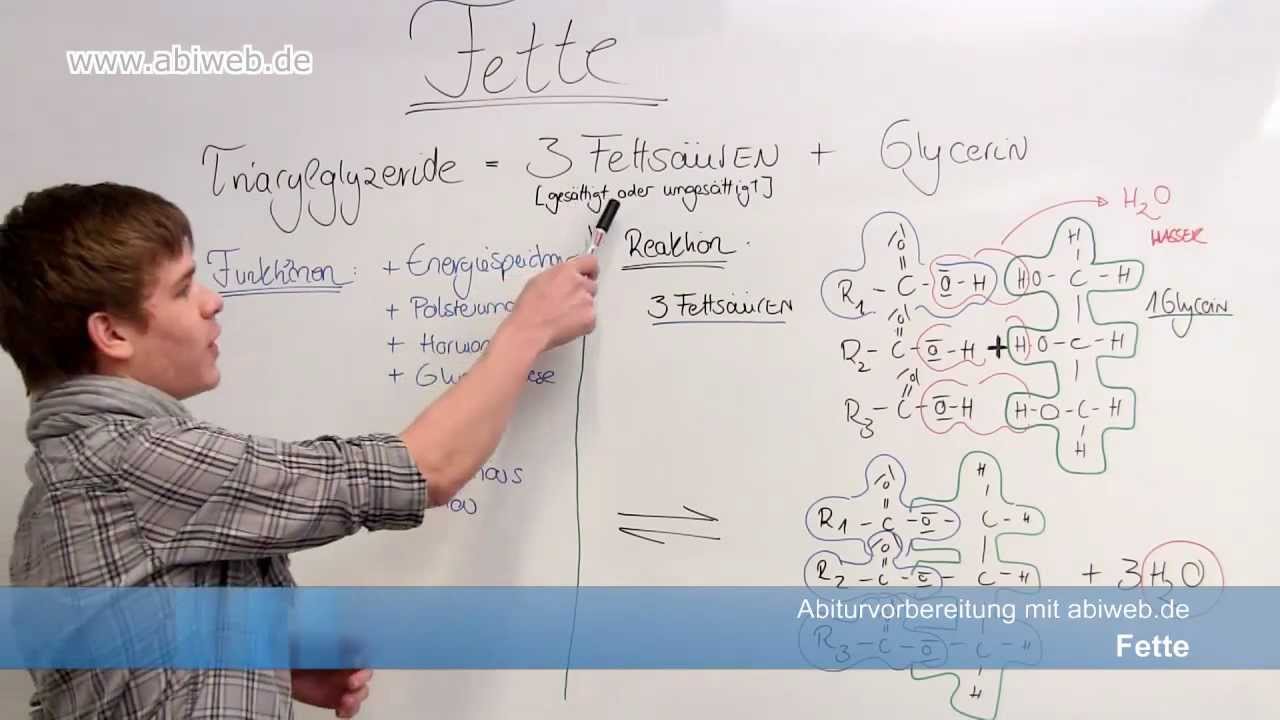 www.abiweb.de
Fette
Triacylglyzeride = 3 Fettsäuren + Glycerin
[gesättigt oder ungesättigt]
Funktionen:
+ Energiespeicher
+ Polsterung
+
+
Reaktion:
3 Fettsäuren
H2O
WASSER
1 Glycerin
H
R1 - C - O - H HO - C - H
R2 - C - O - H + HO - C - H
R3 - C - O - H H - O - C - H
H
H
R1 - C - O - C - H
R2 - C - O - C - H + 3 H2O
R3 - C - O - C - H
H
Abiturvorbereitung mit abiweb.de
Fette